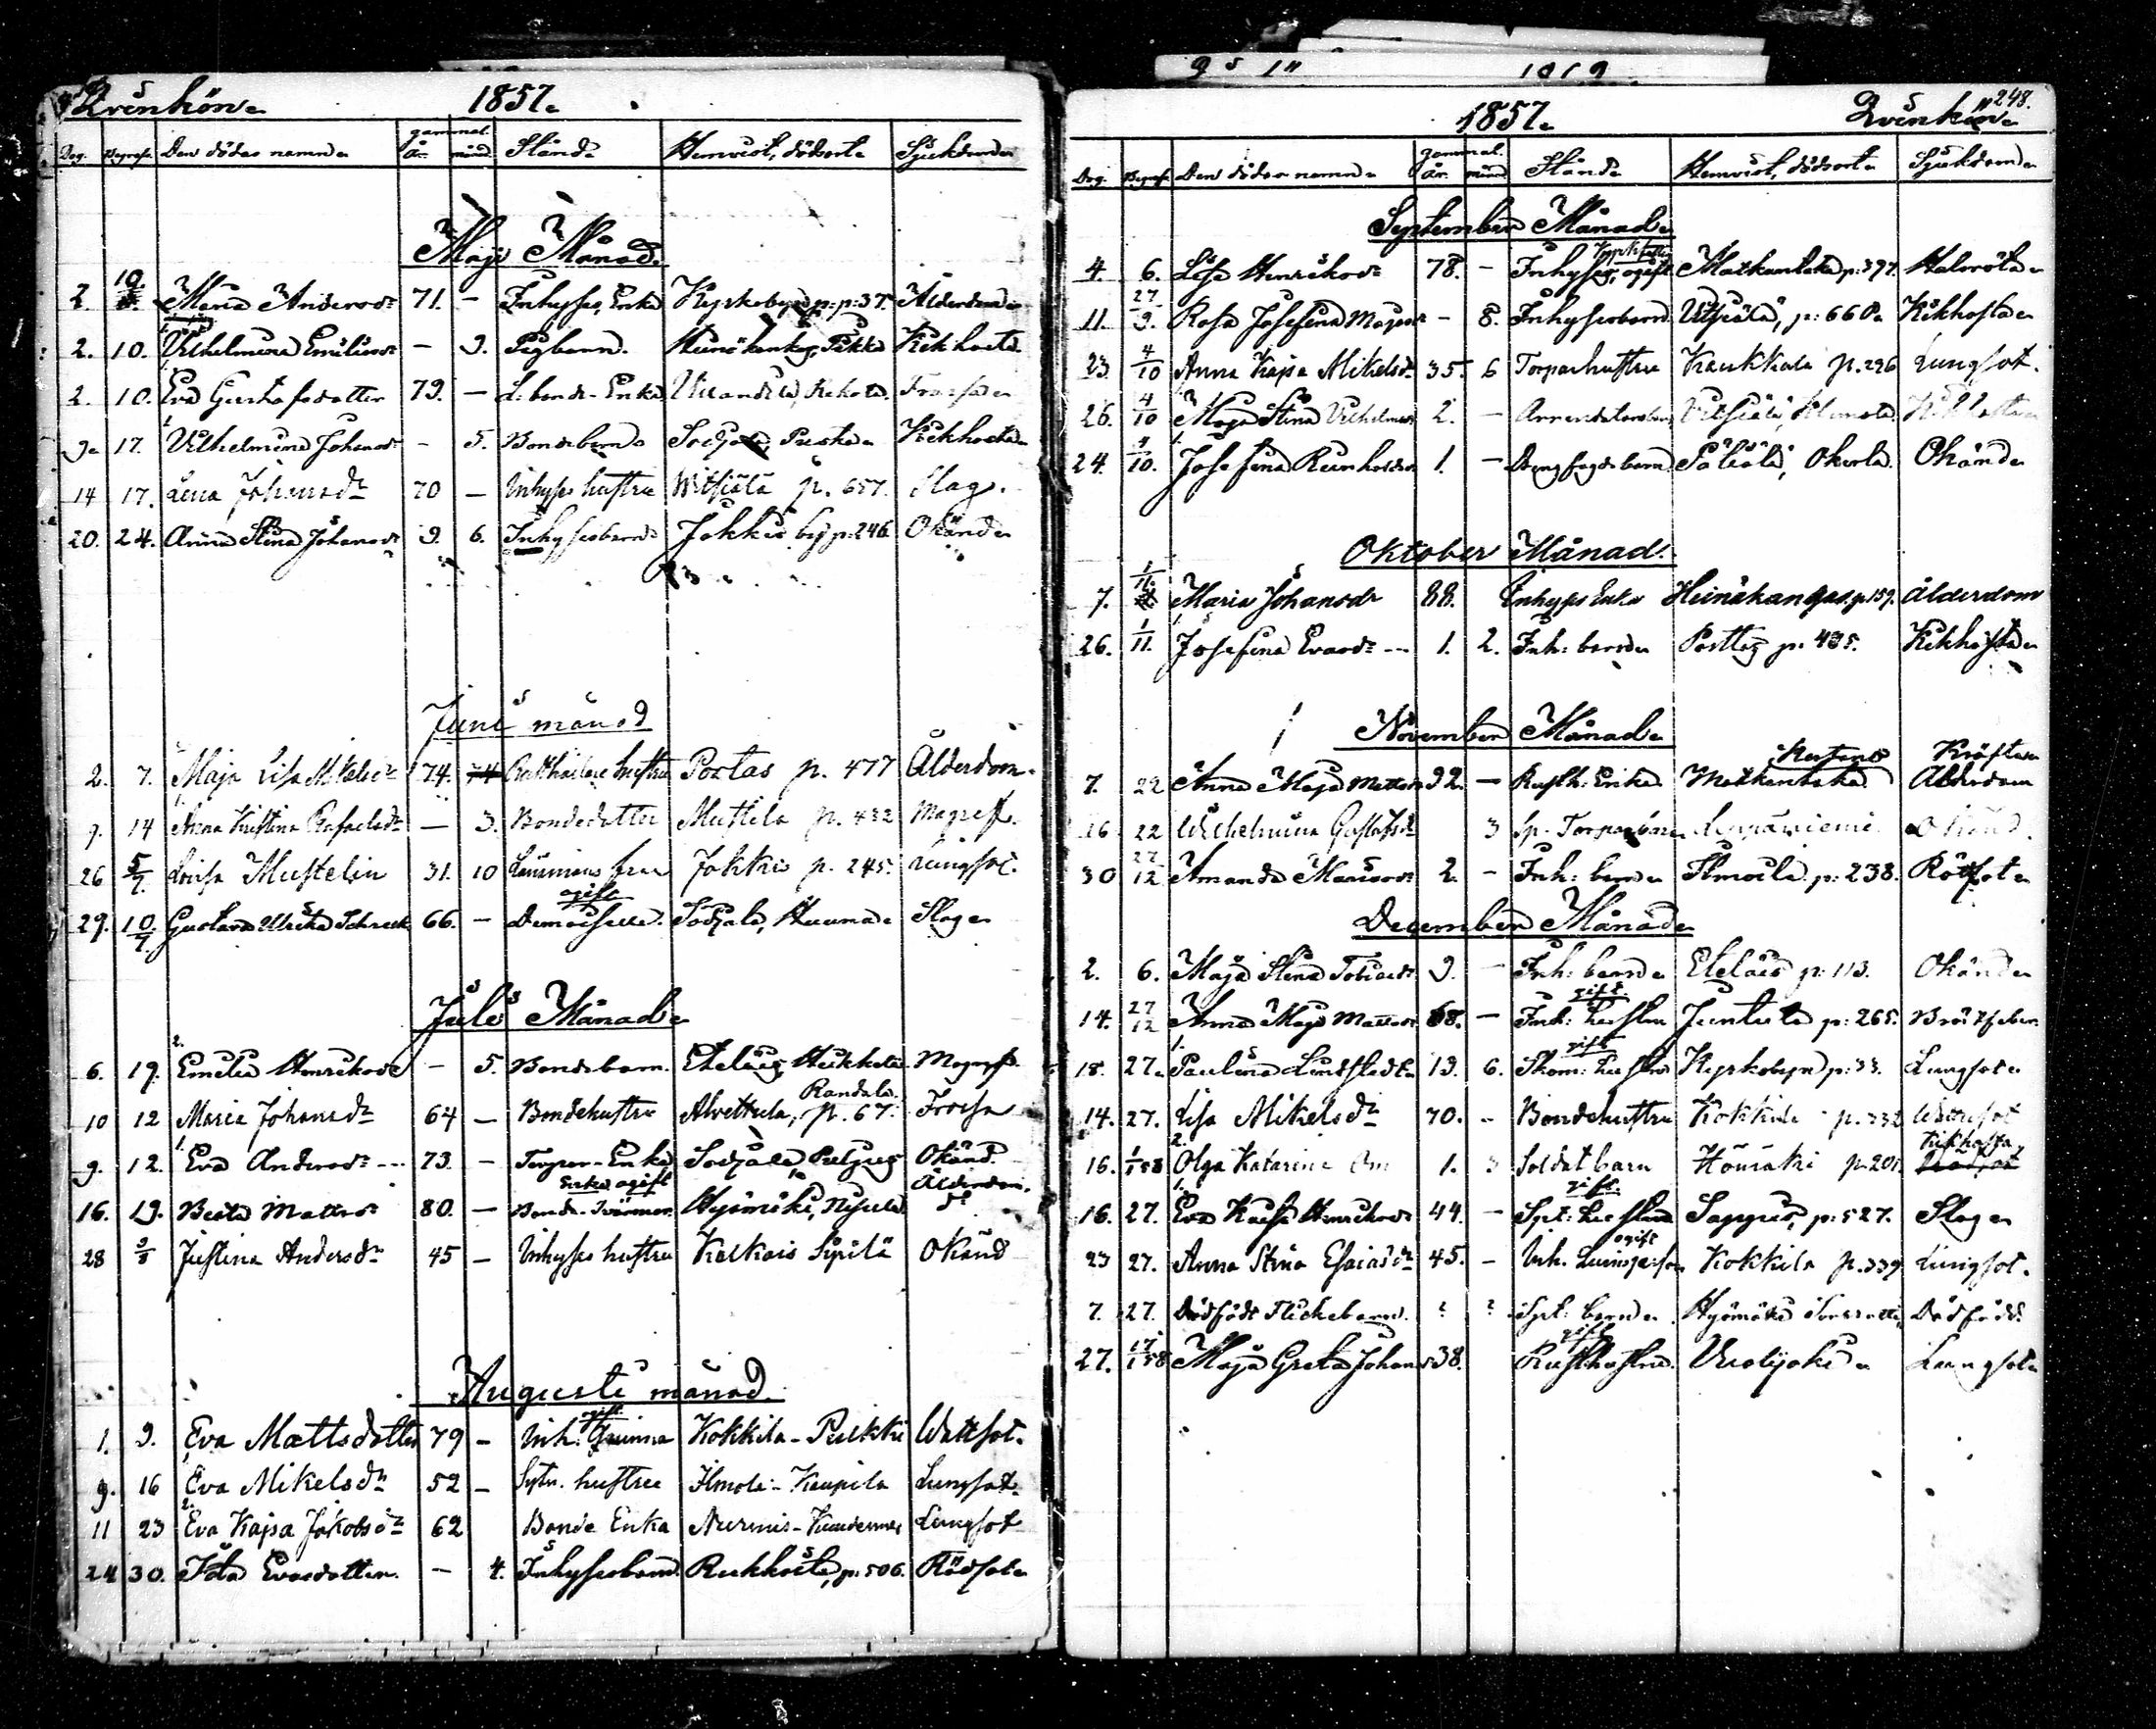 Qvinkön 1857.
Dag. Begrafn. Den dödas namn gammal år. månd. Stånd Hemvist, dödsort Sjukdom
Maji Månad.
2. 10. Maria Andersdr 71. - Inhyses Enka Kyrkobyn p: 37. Ålderdom
2. 10. Vilhelmina Emiliasdr - 9. Pigbarn. Heinäkangas, Pukki Kikhosta
2. 10. Eva Gustafsdotter 79. - Enka Frossa
9. 17. Vilhelmina Johansdr - 5. Bondebarn Sodjala, Kikhosta
14 17. Lena Johansdr 70 - Inhyses hustru Witsiälä p. 657. Slag.
20. 24. Anna Stina Johansdr 9. 6. Inhysesbarn Jokkis by p. 246 Okänd
Juni månad
2. 7. Maja Lisa Mikelsdr 74. hustru Portas p. 477 Ålderdom.
9. 14 Anna Kristina Rafaelsdr - 3. Bondedotter Mustila p. 432 Magref.
26 5/7. Lovisa Mustelin 31. 10 Länsmans fru Jokkis p. 245. Lungsot.
ogift
29. 10/7. Gustava Ulrika Schreck 66. - Demoiselle. Sodjala, Huuma Slag
Juli Månad
6. 19. Emelia Henriksdr - 5. Bondebarn. Eteläis, Heikkilä Magref.
10 12 Maria Johansdr 64 - Bondehustru Alvettula, Randala. p. 67. Frossa
9. 12. Eva Andersdr 73. - Torpar-Enka Sodjala Okänd.
Enka ogift Ålderdom.
16. 19. Beata Mattsdr 80. - Hyömäki, do
28 2/8 Justina Andersdr 45 - Inhyses hustru Kalkois Sipilä Okänd
Augusti månad.
ogift
1. 9. Eva Mattsdotter 79 - Inh. Qvinna Kokkila - Pukki Wattsot.
9. 16 Eva Mikelsdr 52 - Sytn. hustru Ilmoila - Kaupila Lungsot.
11 23 Eva Kajsa Jakobsdr 62 Bonde Enka Nurmis - Lungsot
24 30. Ida Evasdotter. - 4. Inhysesbarn. Rukkoila, p: 506. Rödsot
248.
1857. Qvinkön
Dag. Begrafn. Den dödas namn gammal. år. månd Stånd Hemvist, dödsort Sjukdom
September Månad
4. 6. Lisa Henriksdr 78. - Inhyses, ogift Matkantaka p: 397. Halsröta
11. 27/9. Rosa Josefina Majasdr - 8. Inhysesbarn. Vitsiälä, p: 660. Kikhosta
23. 4/10 Anna Kajsa Mikelsdr 35. 6 Torparhustru Kaukkala p. 296 Lungsot.
26. 4/10 Maja Stina Vilhelmsdr 2. - Vitsiälä, Kikhosta
24. 4/10. Josefina Reinholdsdr 1. - Drengfogde barn Päläilä, Okerla. Okänd
Oktober Månad.
7. 1/11. Maria Johansdr 88. Inhyses Enka Heinäkangas. p. 159. Ålderdom
26. 1/11. Josefina Evasdr 1. 2. Inh: barn Portas p. 485. Kikhosta
November Månad
Kräftan
7. 22 Anna Maja Mattsdr 92. - Rusth: Enka Matkantaka Ålderdom
16 22 Wilhelmina Gustafsdr 3 Sp. Torparbarn Leppäniemi Okänd.
30 27/12 Amanda Mariasdr 2. - Inh: barn Ilmoila p: 238. Rötsot
December Månad
2. 6. Maja Stina Tobiasdr 9. - Inh: barn Eteläis p: 113. Okänd
gift.
14. 27/12 Anna Maja Mattsdr 68. - Inh: hustru Juntula p: 265. Bröstfeber
gift
18. 27. Paulina Lindstedt 19. 6. Skom: hustru Kyrkobyn p: 33. Lungsot
14. 27. Lisa Mikelsdr 70. - Bondehustru Kokkila p. 332 Wattusot
Kikhosta
16. 1/1 58 Olga Katarina 1. 3 Soldat barn Hömäki p. 201. Rödsot
gift.
16. 27. Eva Kaisa Henriksdr 44. - Spt: hustru Sappis, p: 527. Slag
ogift
23 27. Anna Stina Esaiasdr 45. - Inh. Qvinsperson Kokkila p. 339 Lungsot.
7. 27. Dödfödt Flickebarn. ? ? Spt: barn Hyömäki Dödfödd
gift
27. 17/1 58 Maja Greta Johansdr 38. Rusthustru Vuolijoki Lungsot